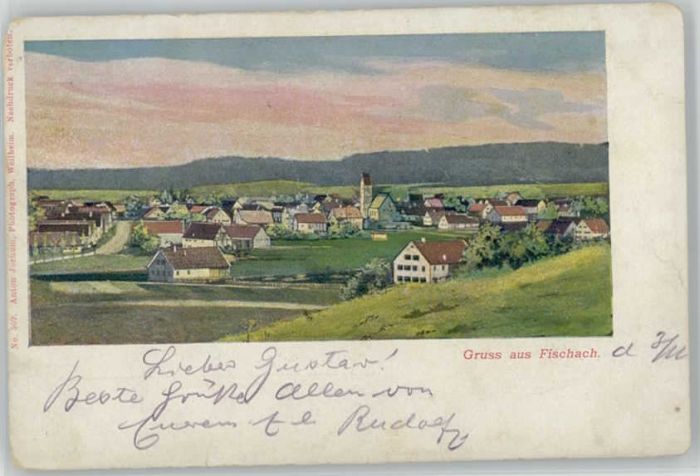 No. 309. Anton Jocham, Photograph, Weilheim. Nachdruck verboten.
Gruss aus Fischach.
Lieber Gustav!
Beste Grüße Allen von
Eurem Rudolf